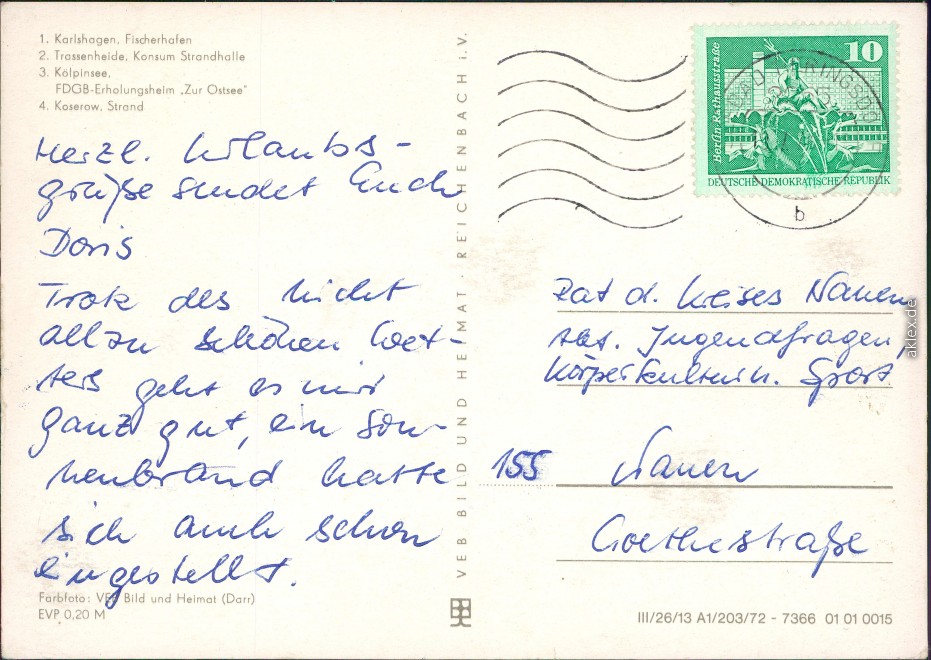 1. Karlshagen, Fischerhafen
2. Trassenheide, Konsum Strandhalle
3. Kölpinsee,
FDGB-Erholungsheim „Zur Ostsee"
4. Koserow, Strand
Herzl. Urlaubs-
grüße sendet Euch
Doris
Trotz des nicht
allzu schönen Wet-
ters geht es mir
ganz gut, ein Son-
nenbrand hatte
sich auch schon
eingestellt.
Farbfoto: VEB Bild und Heimat (Darr)
EVP 0,20 M
VEB BILD UND HEIMAT · REICHENBACH i. V.
10
Berlin-Rathausstraße
DEUTSCHE DEMOKRATISCHE REPUBLIK
b
Rat d. Kreises Nauen
Abt. Jugendfragen,
Körperkultur u. Sport
155 Nauen
Goethestraße
III/26/13 A1/203/72 - 7366 01 01 0015
aklex.de